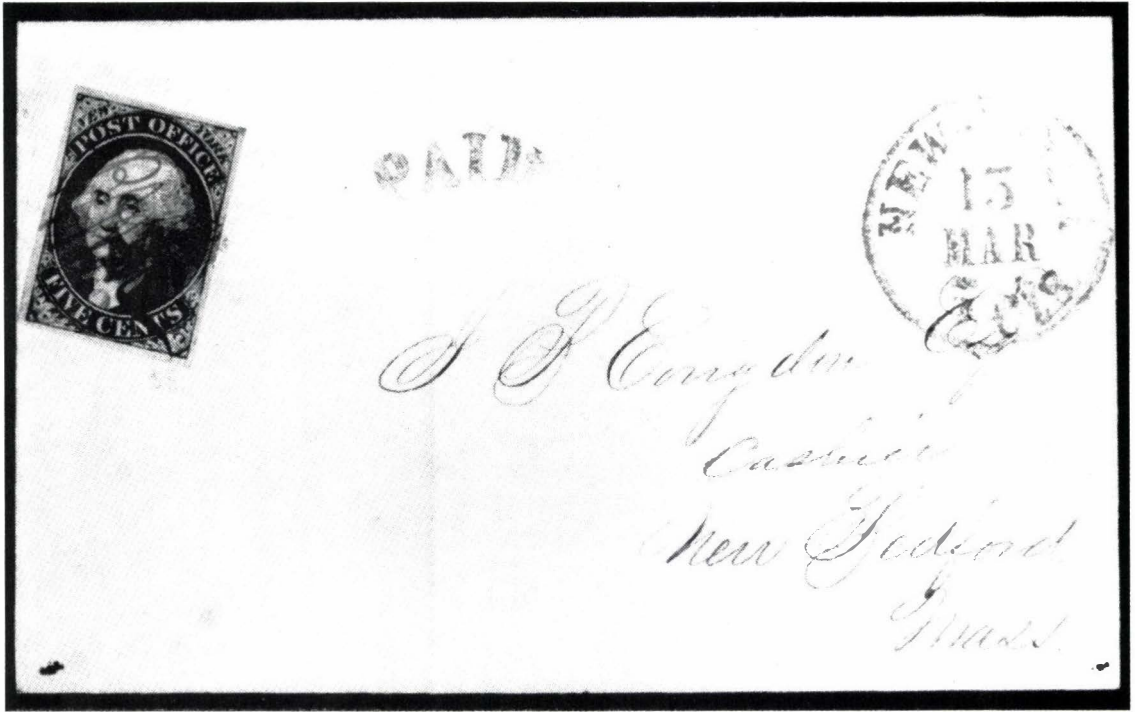 NEW YORK
POST OFFICE
FIVE CENTS
PAID
NEW
15
MAR
5 cts
J P Congdon Esq
Cashier
New Bedford
Mass.